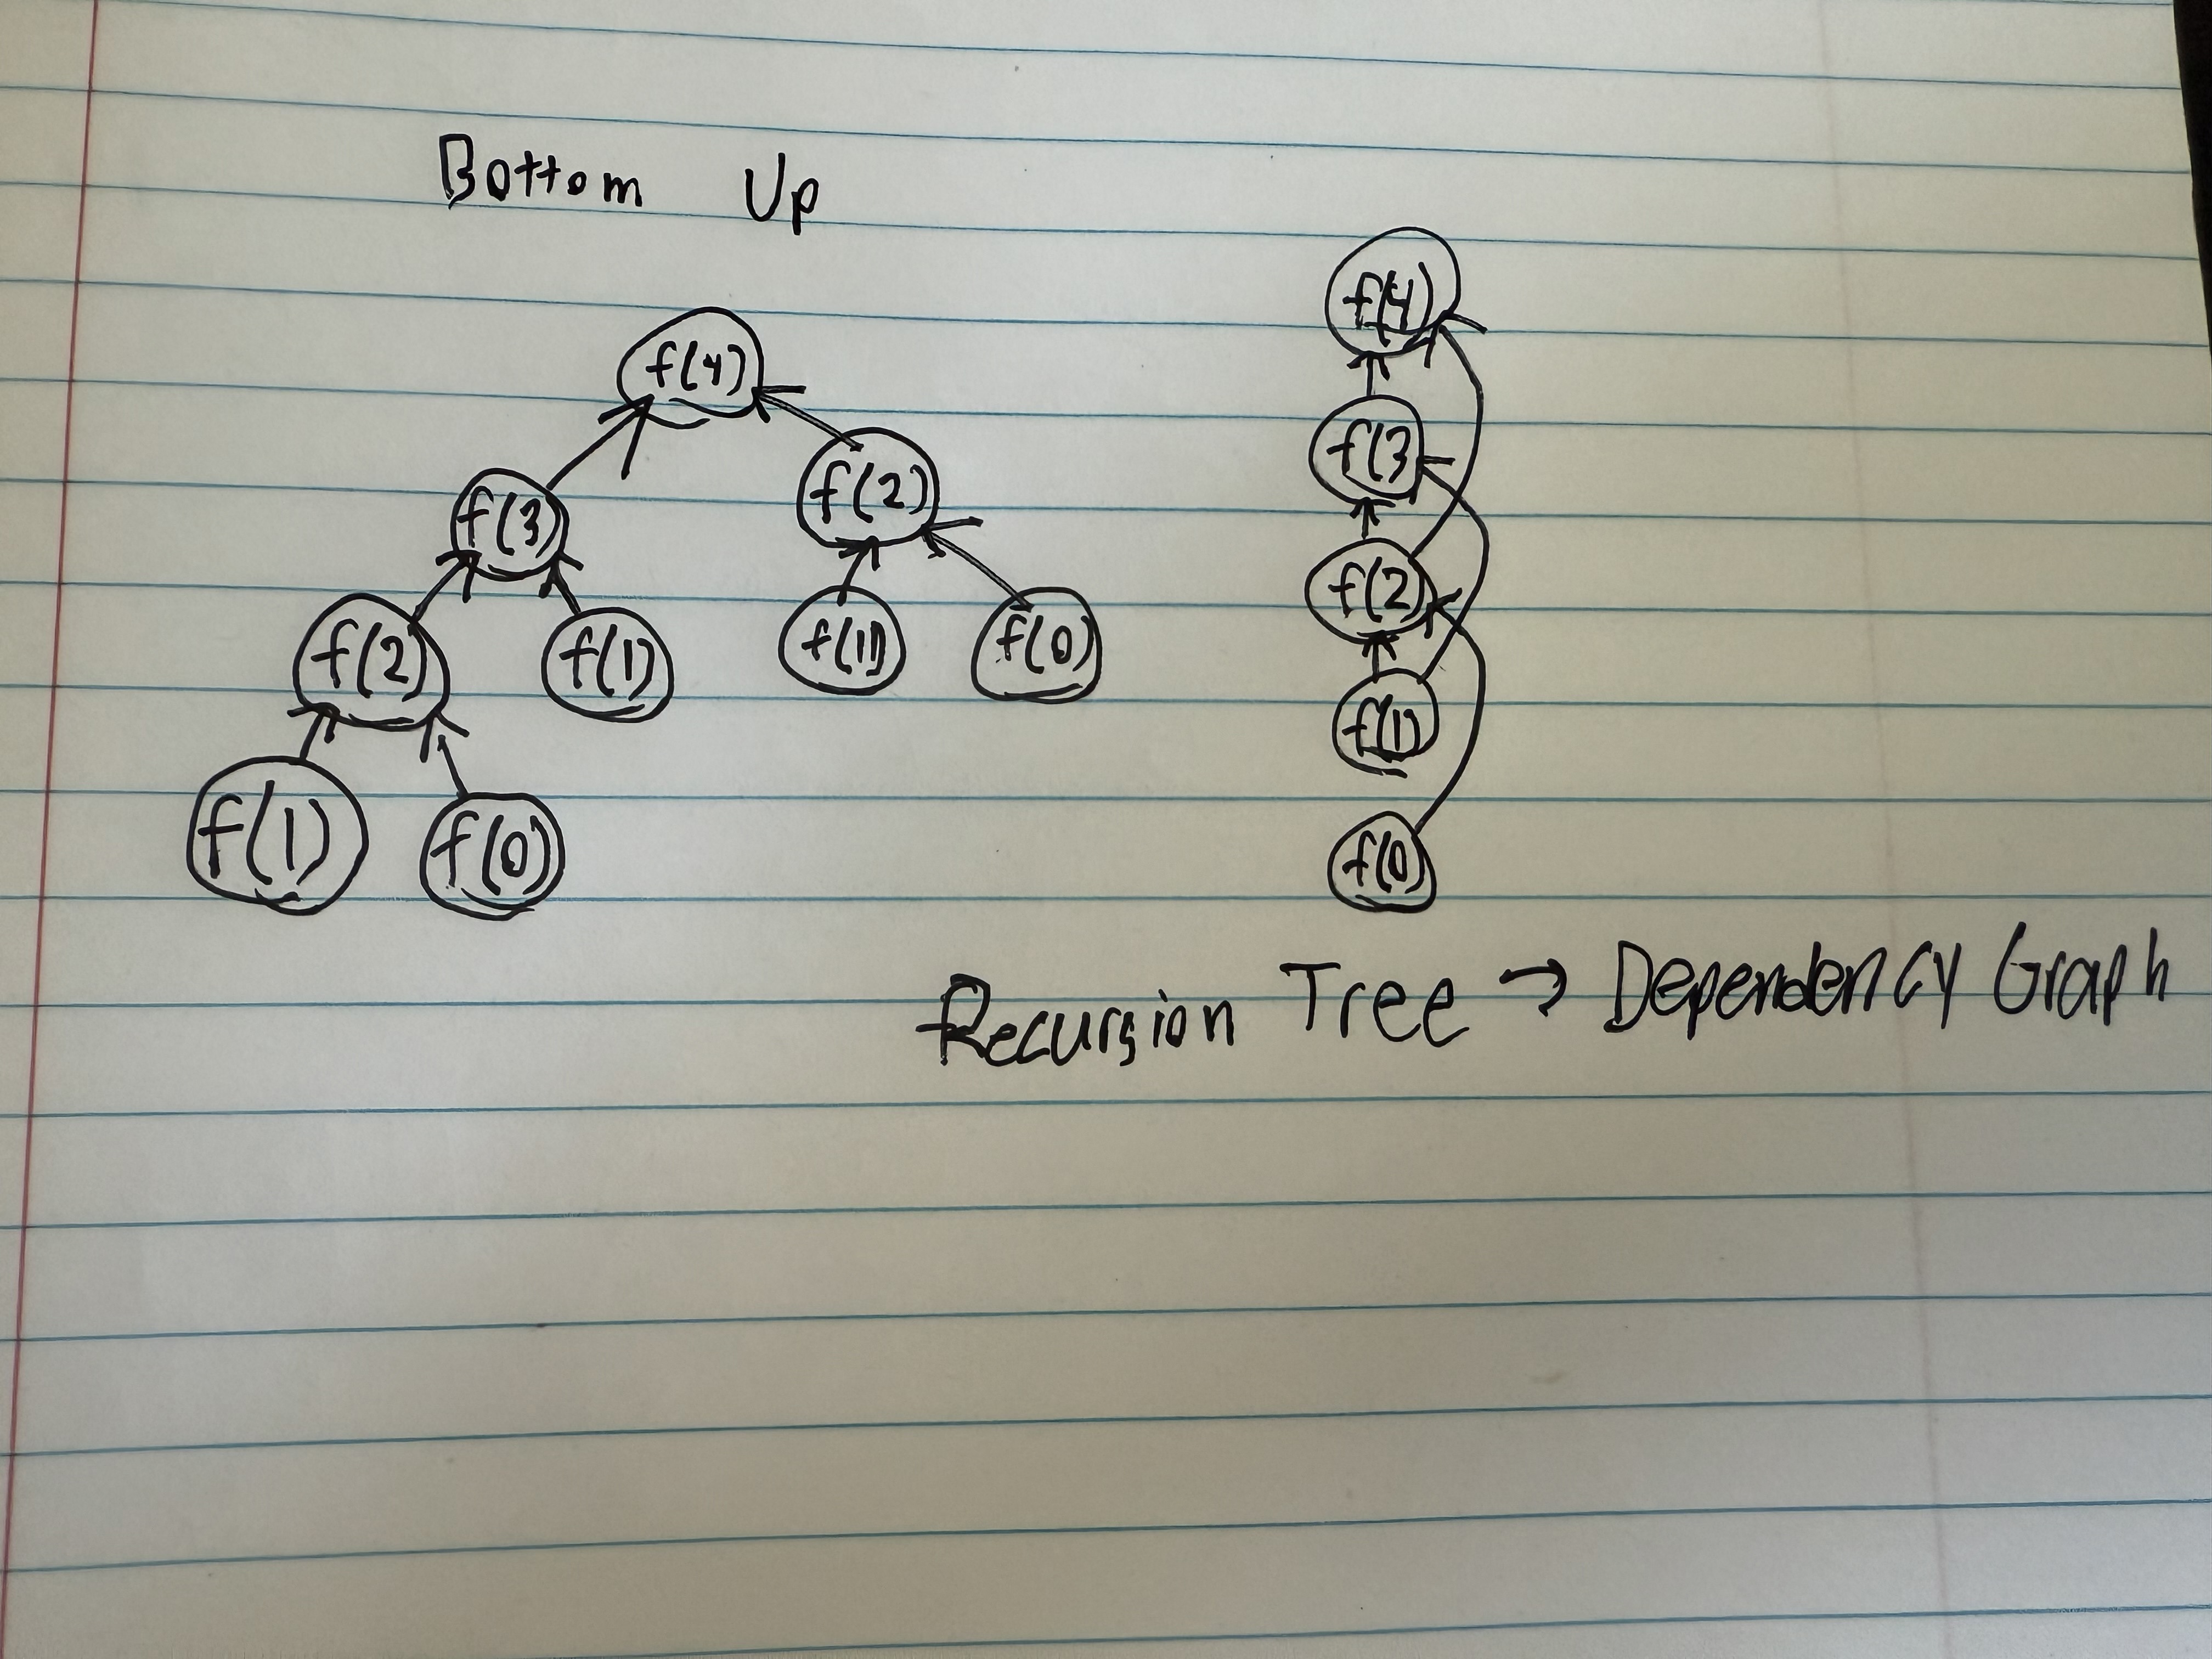 Bottom Up
f(4)
f(3) f(2)
f(2) f(1) f(1) f(0)
f(1) f(0)
f(4)
f(3
f(2)
f(1)
f(0)
Recursion Tree → Dependency Graph